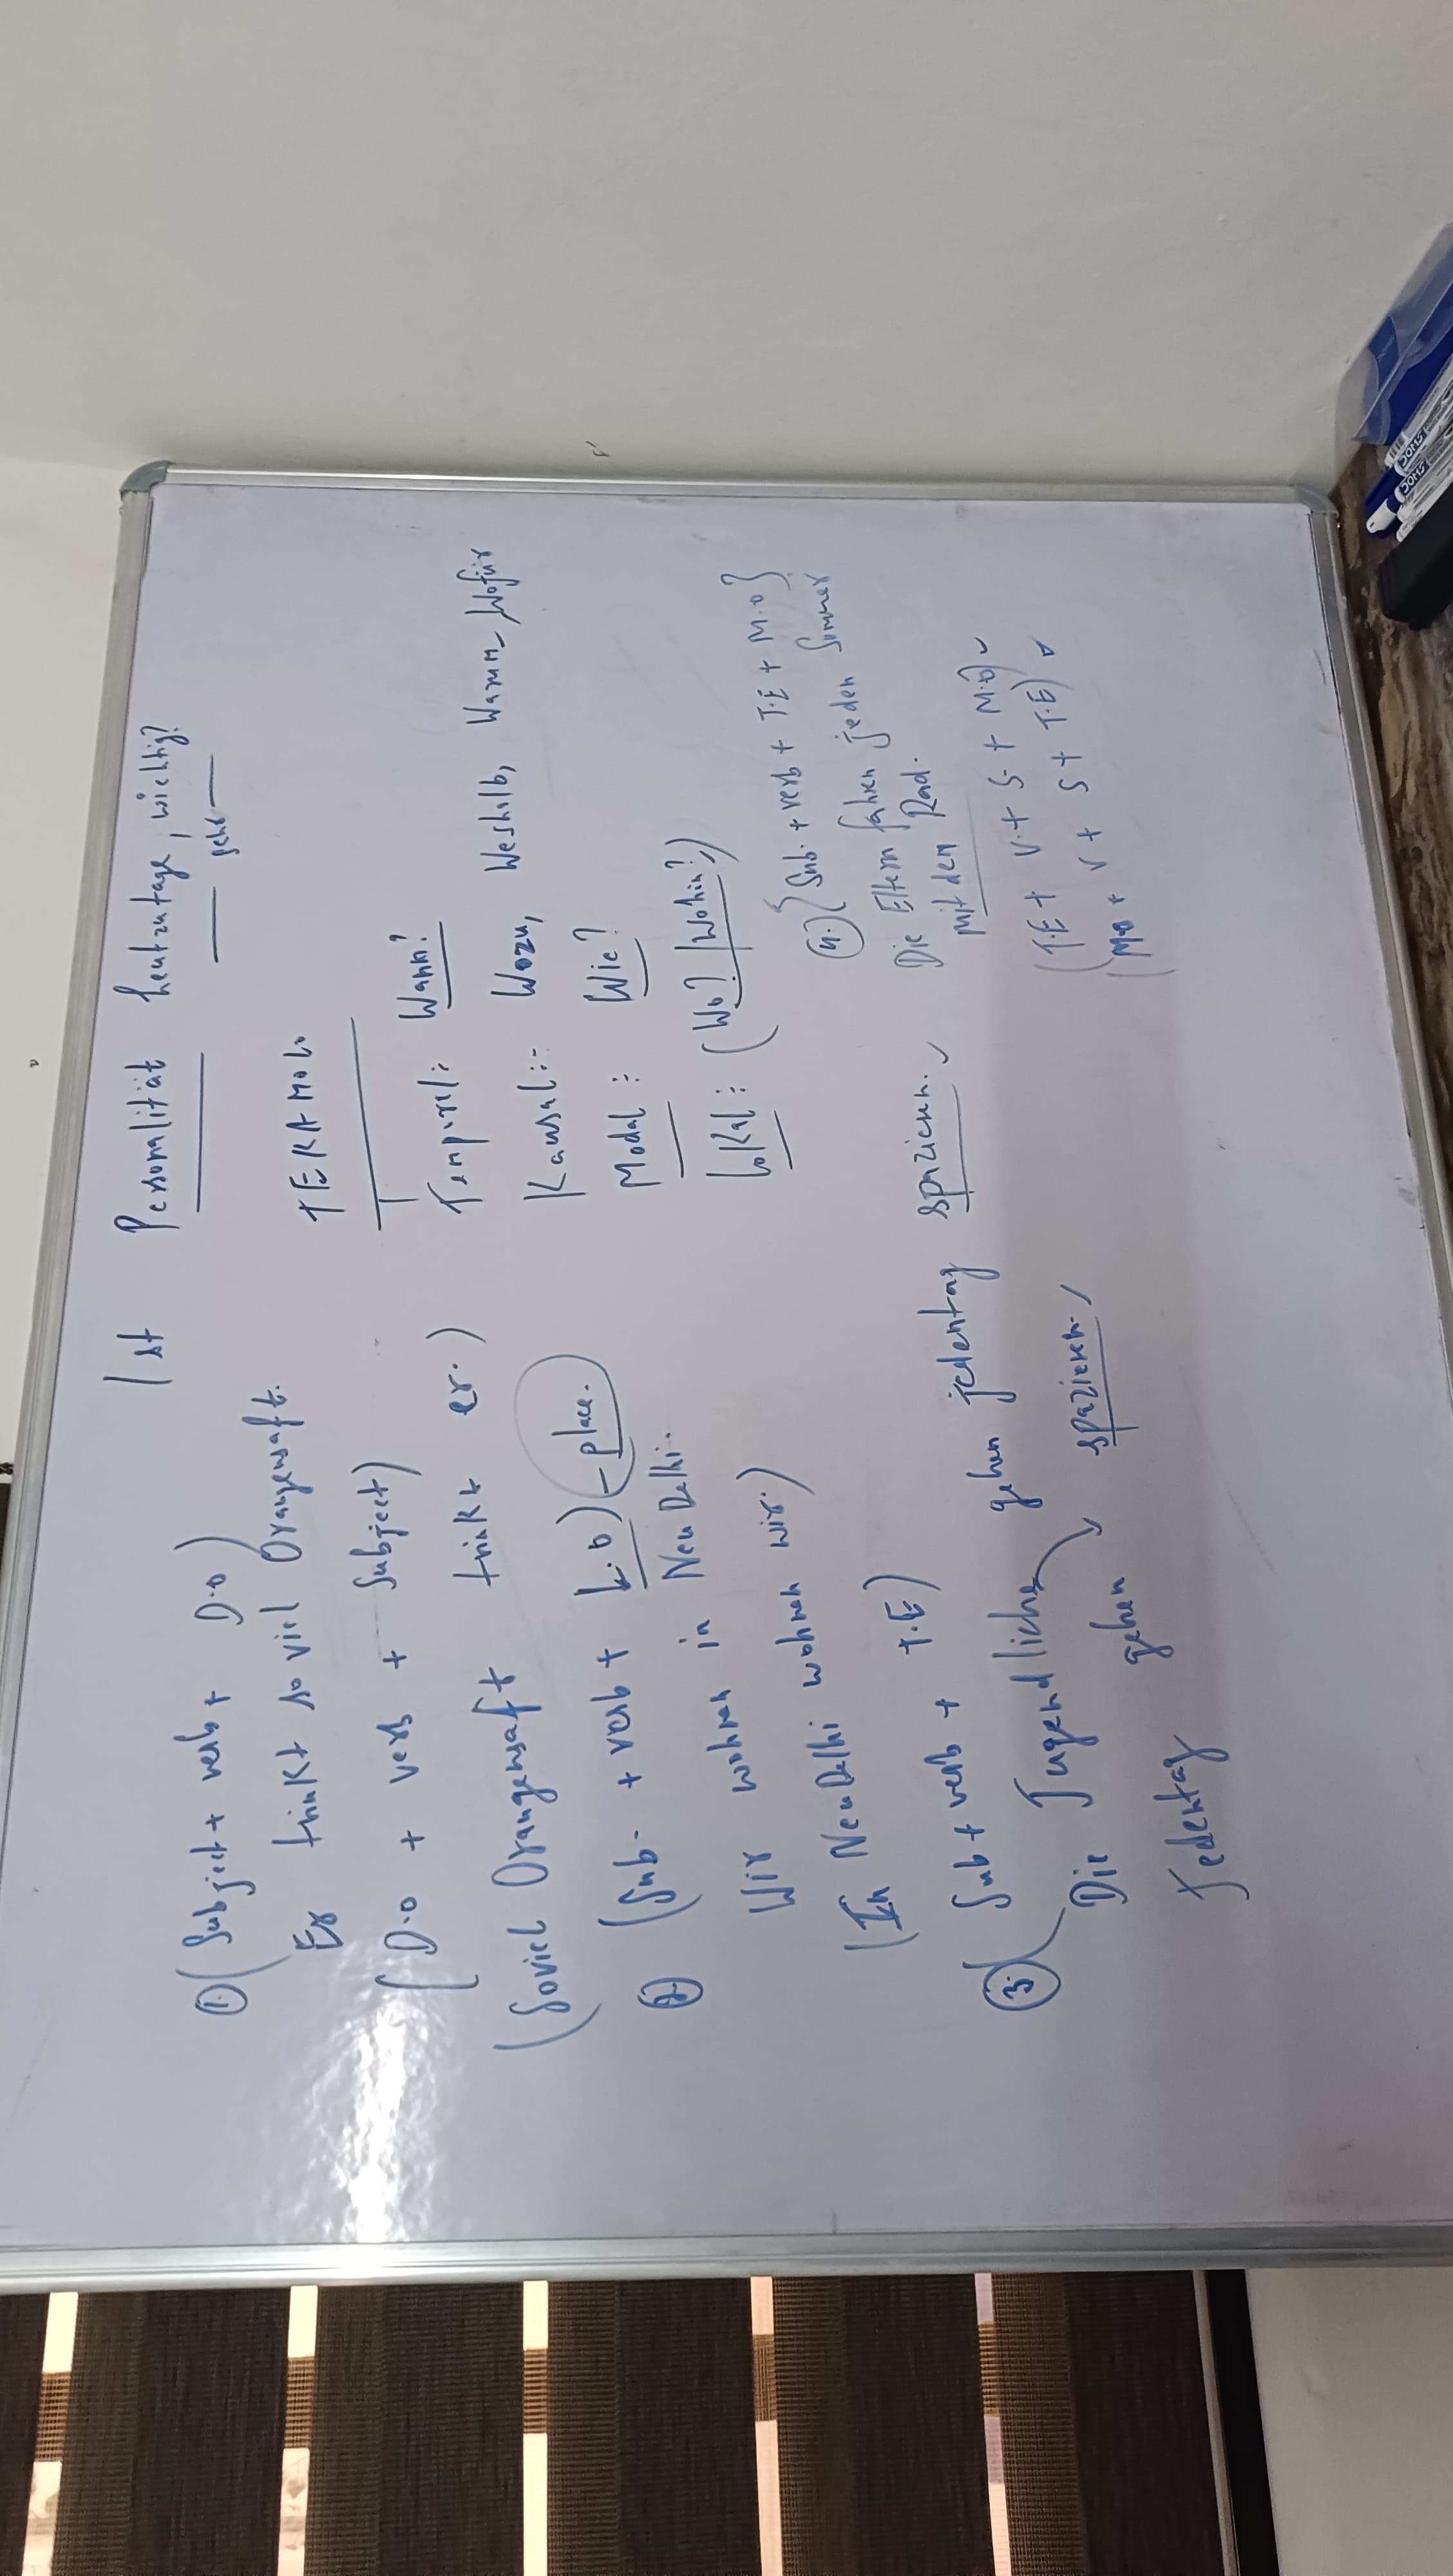 Ist Personalität heutzutage, wichtig?
sehr
① (Subject + verb + D.O)
Er trinkt so viel Orangensaft.
(D.O + verb + Subject)
(Soviel Orangensaft trinkt er.)
② (Sub. + verb + L.O) - place.
Wir wohnen in Neu Delhi.
(In Neu Delhi wohnen wir.)
③ Sub + verb + T.E)
Die Jugendliche gehen jedentag spazieren. ✓
Jedentag gehen spazieren.
TEKAMOLO
T
Temporal: Wann?
Kausal:- Wozu, Weshalb, Warum - Wofür
Modal: Wie?
Lokal: (Wo? / Wohin?)
④ {Sub. + verb + T.E + M.O}
Die Eltern fahren jeden Sommer
mit dem Rad.
(T.E + V. + S. + M.O) ✓
(M.O + V + S + T.E) ✓
DOMS
DOMS